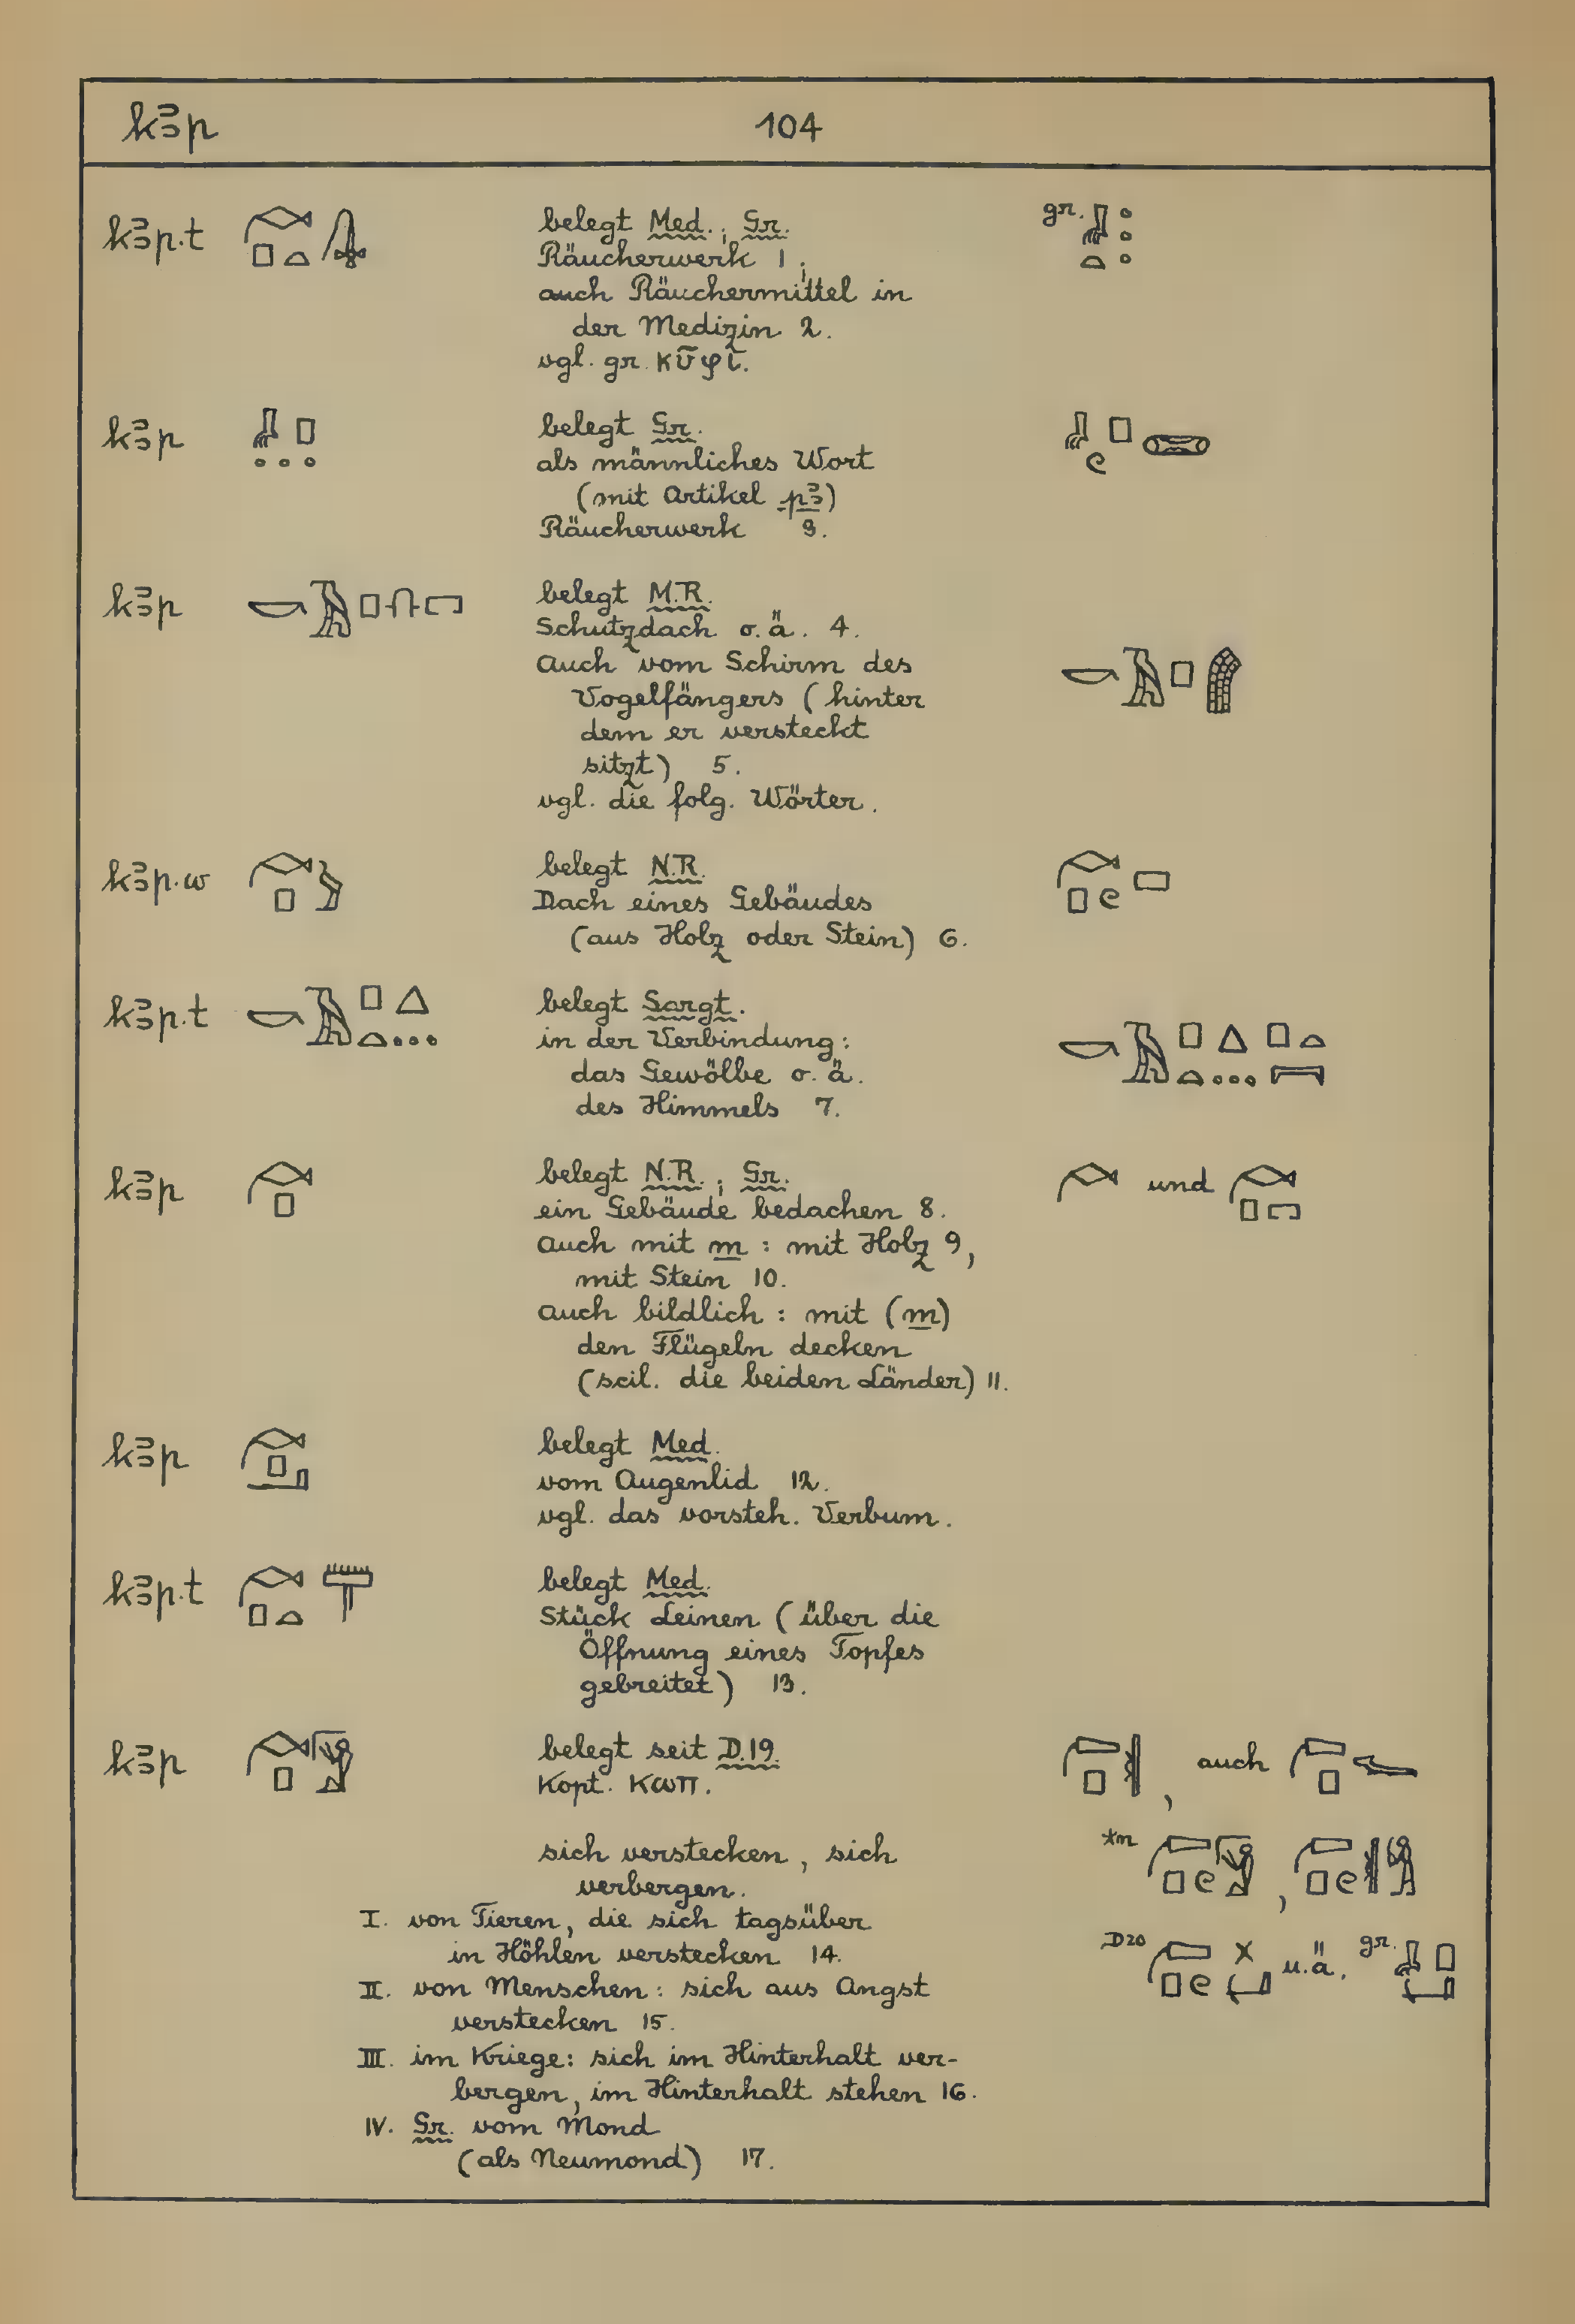 kꜣp 104
kꜣp.t belegt Med.; Gr. gr.
Räucherwerk 1;
auch Räuchermittel in
der Medizin 2.
vgl. gr. κῡφῑ.
kꜣp belegt Gr.
als männliches Wort
(mit Artikel pꜣ)
Räucherwerk 3.
kꜣp belegt M.R.
Schutzdach o.ä. 4.
Auch vom Schirm des
Vogelfängers (hinter
dem er versteckt
sitzt) 5.
vgl. die folg. Wörter.
kꜣp.w belegt N.R.
Dach eines Gebäudes
(aus Holz oder Stein) 6.
kꜣp.t belegt Sargt.
in der Verbindung:
das Gewölbe o.ä.
des Himmels 7.
kꜣp belegt N.R.; Gr. und
ein Gebäude bedachen 8.
Auch mit m: mit Holz 9,
mit Stein 10.
Auch bildlich: mit (m)
den Flügeln decken
(scil. die beiden Länder) 11.
kꜣp belegt Med.
vom Augenlid 12.
vgl. das vorsteh. Verbum.
kꜣp.t belegt Med.
Stück Leinen (über die
Öffnung eines Topfes
gebreitet) 13.
kꜣp belegt seit D.19. , auch
Kopt. ⲕⲱⲡ.
*n ,
sich verstecken, sich
verbergen.
I. von Tieren, die sich tagsüber
in Höhlen verstecken 14.
D20 u.ä. gr.
II. von Menschen: sich aus Angst
verstecken 15.
III. im Kriege: sich im Hinterhalt ver-
bergen, im Hinterhalt stehen 16.
IV. Gr. vom Mond
(als Neumond) 17.